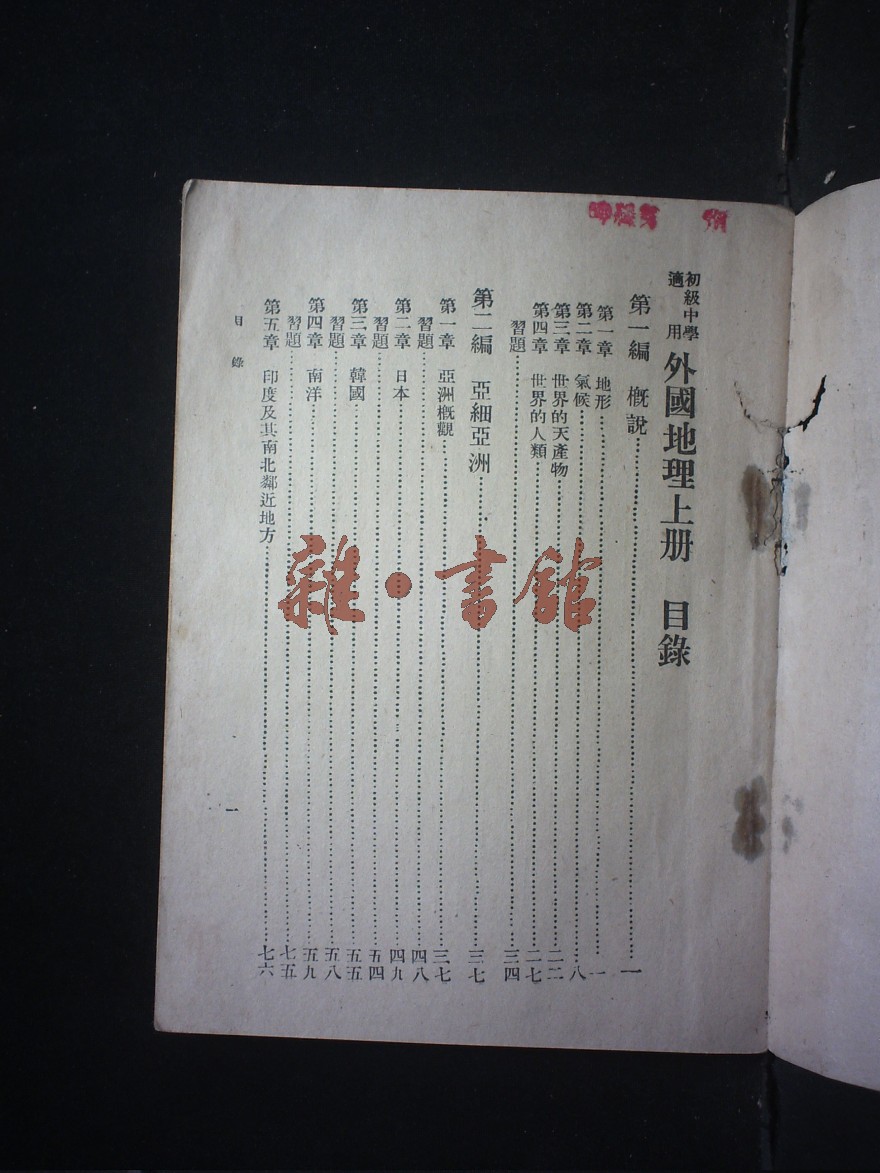 初級中學適用
外國地理上册 目錄
第一編 概說……一
第一章 地形……一
第二章 氣候……八
第三章 世界的天產物……二二
第四章 世界的人類……二七
習題……三四
第二編 亞細亞洲……三七
第一章 亞洲概觀……三七
習題……四八
第二章 日本……四九
習題……五四
第三章 韓國……五五
習題……五八
第四章 南洋……五九
習題……七五
第五章 印度及其南北鄰近地方……七六
目錄
一
雜·書館